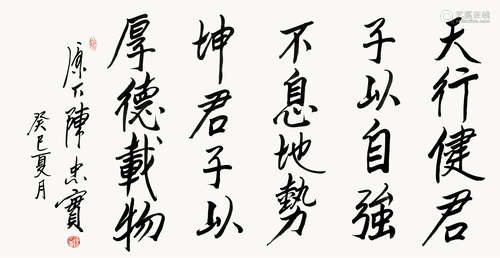 天行健君
子以自強
不息地勢
坤君子以
厚德載物
陳忠實
癸巳夏月